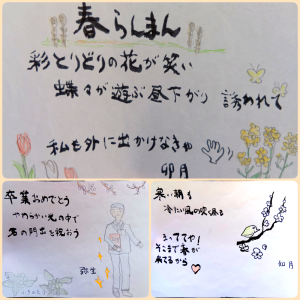 春らんまん
彩とりどりの花が笑い
蝶々が遊ぶ昼下がり 誘われて
私も外に出かけなきゃ
卯月
卒業おめでとう
やわらかい光の中で
君の門出を祝おう
弥生
寒い朝も
冷たい風の
まっててや!
そこまで春が
来てるから
如月